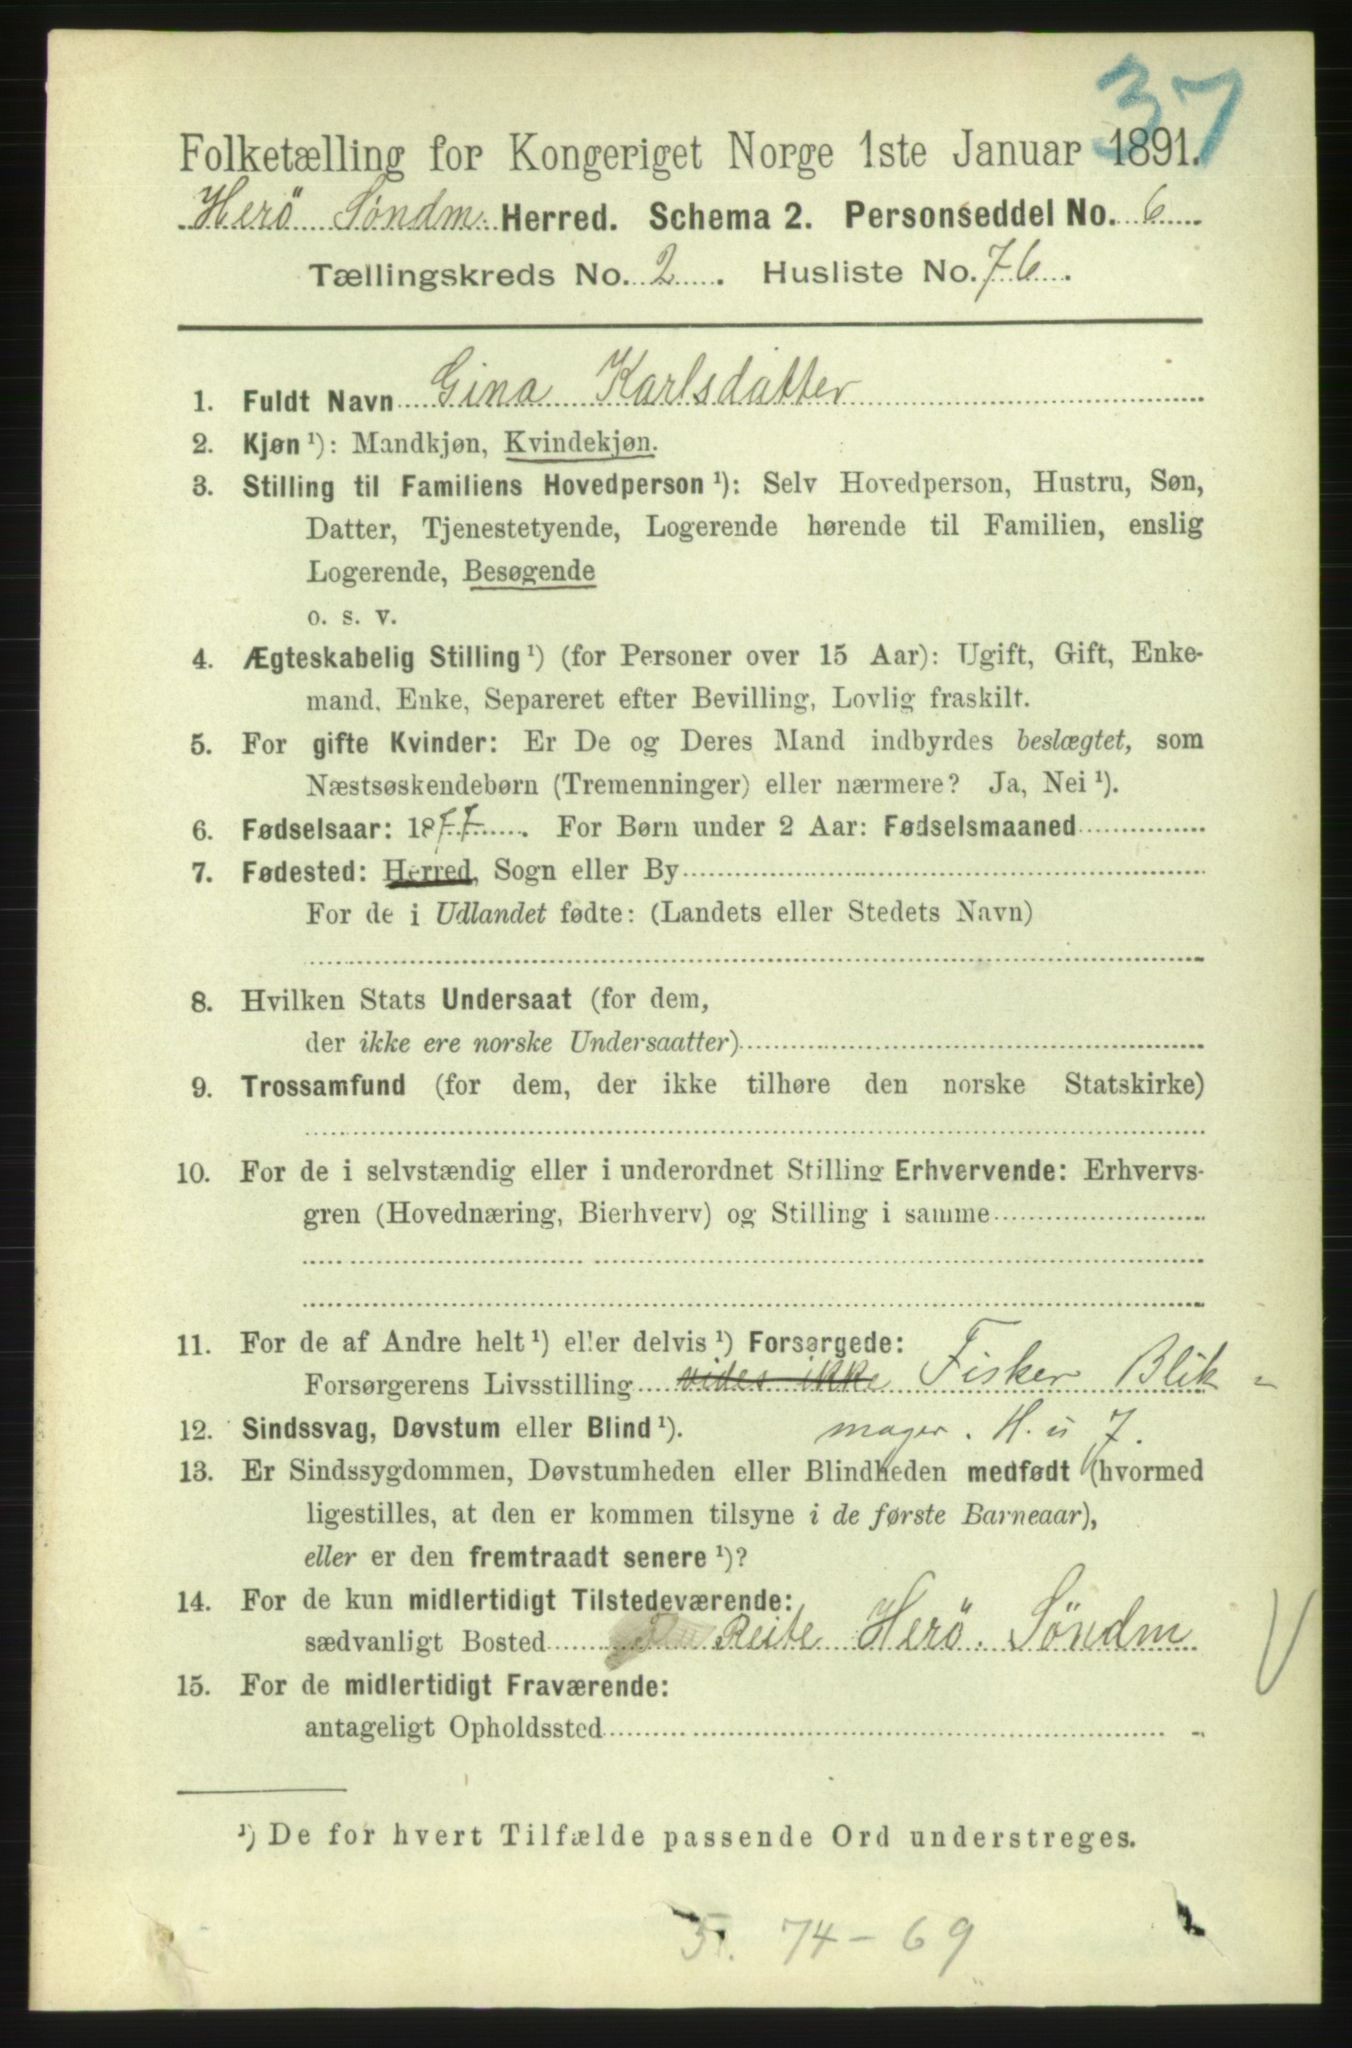 37
Folketælling for Kongeriget Norge 1ste Januar 1891.
Herö Söndm. Herred. Schema 2. Personseddel No. 6
Tællingskreds No. 2. Husliste No. 76.
1. Fuldt Navn Gina Karlsdatter
2. Kjøn ¹): Mandkjøn, Kvindekjøn.
3. Stilling til Familiens Hovedperson ¹): Selv Hovedperson, Hustru, Søn,
Datter, Tjenestetyende, Logerende hørende til Familien, enslig
Logerende, Besøgende
o. s. v.
4. Ægteskabelig Stilling ¹) (for Personer over 15 Aar): Ugift, Gift, Enke-
mand, Enke, Separeret efter Bevilling, Lovlig fraskilt.
5. For gifte Kvinder: Er De og Deres Mand indbyrdes beslægtet, som
Næstsøskendebørn (Tremenninger) eller nærmere? Ja, Nei ¹).
6. Fødselsaar: 1877. For Børn under 2 Aar: Fødselsmaaned
7. Fødested: Herred, Sogn eller By
For de i Udlandet fødte: (Landets eller Stedets Navn)
8. Hvilken Stats Undersaat (for dem,
der ikke ere norske Undersaatter)
9. Trossamfund (for dem, der ikke tilhøre den norske Statskirke)
10. For de i selvstændig eller i underordnet Stilling Erhvervende: Erhvervs-
gren (Hovednæring, Bierhverv) og Stilling i samme
11. For de af Andre helt ¹) eller delvis ¹) Forsørgede:
Forsørgerens Livsstilling vides ikke Fisker Blik-
12. Sindssvag, Døvstum eller Blind ¹). mager. H. u 7.
13. Er Sindssygdommen, Døvstumheden eller Blindheden medfødt (hvormed
ligestilles, at den er kommen tilsyne i de første Barneaar),
eller er den fremtraadt senere ¹)?
14. For de kun midlertidigt Tilstedeværende:
sædvanligt Bosted Reite Herö. Söndm
15. For de midlertidigt Fraværende:
antageligt Opholdssted
¹) De for hvert Tilfælde passende Ord understreges.
5. 74-69